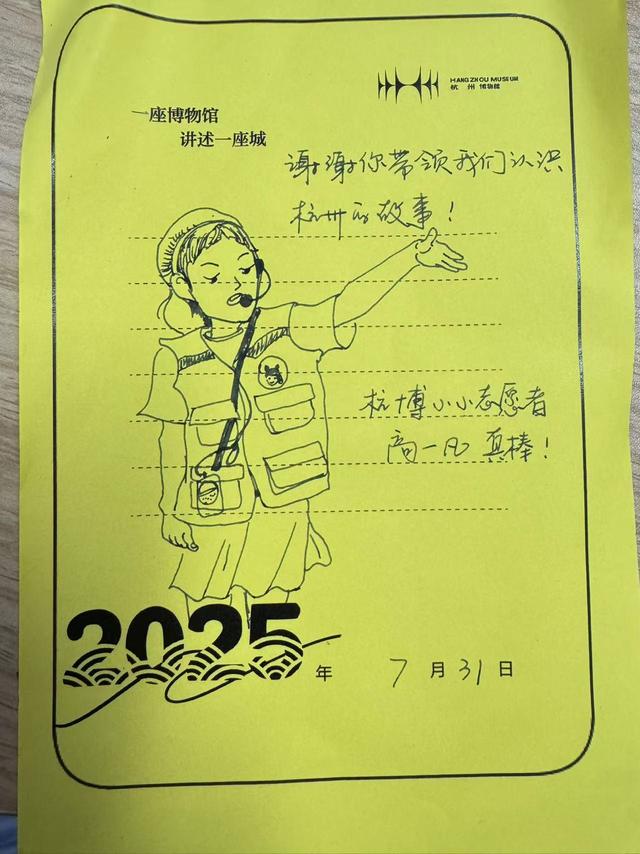 HANGZHOU MUSEUM
杭州博物馆
一座博物馆
讲述一座城
谢谢你带领我们认识
杭州的故事！
杭博小小志愿者
高一凡 真棒！
2025年 7月31日